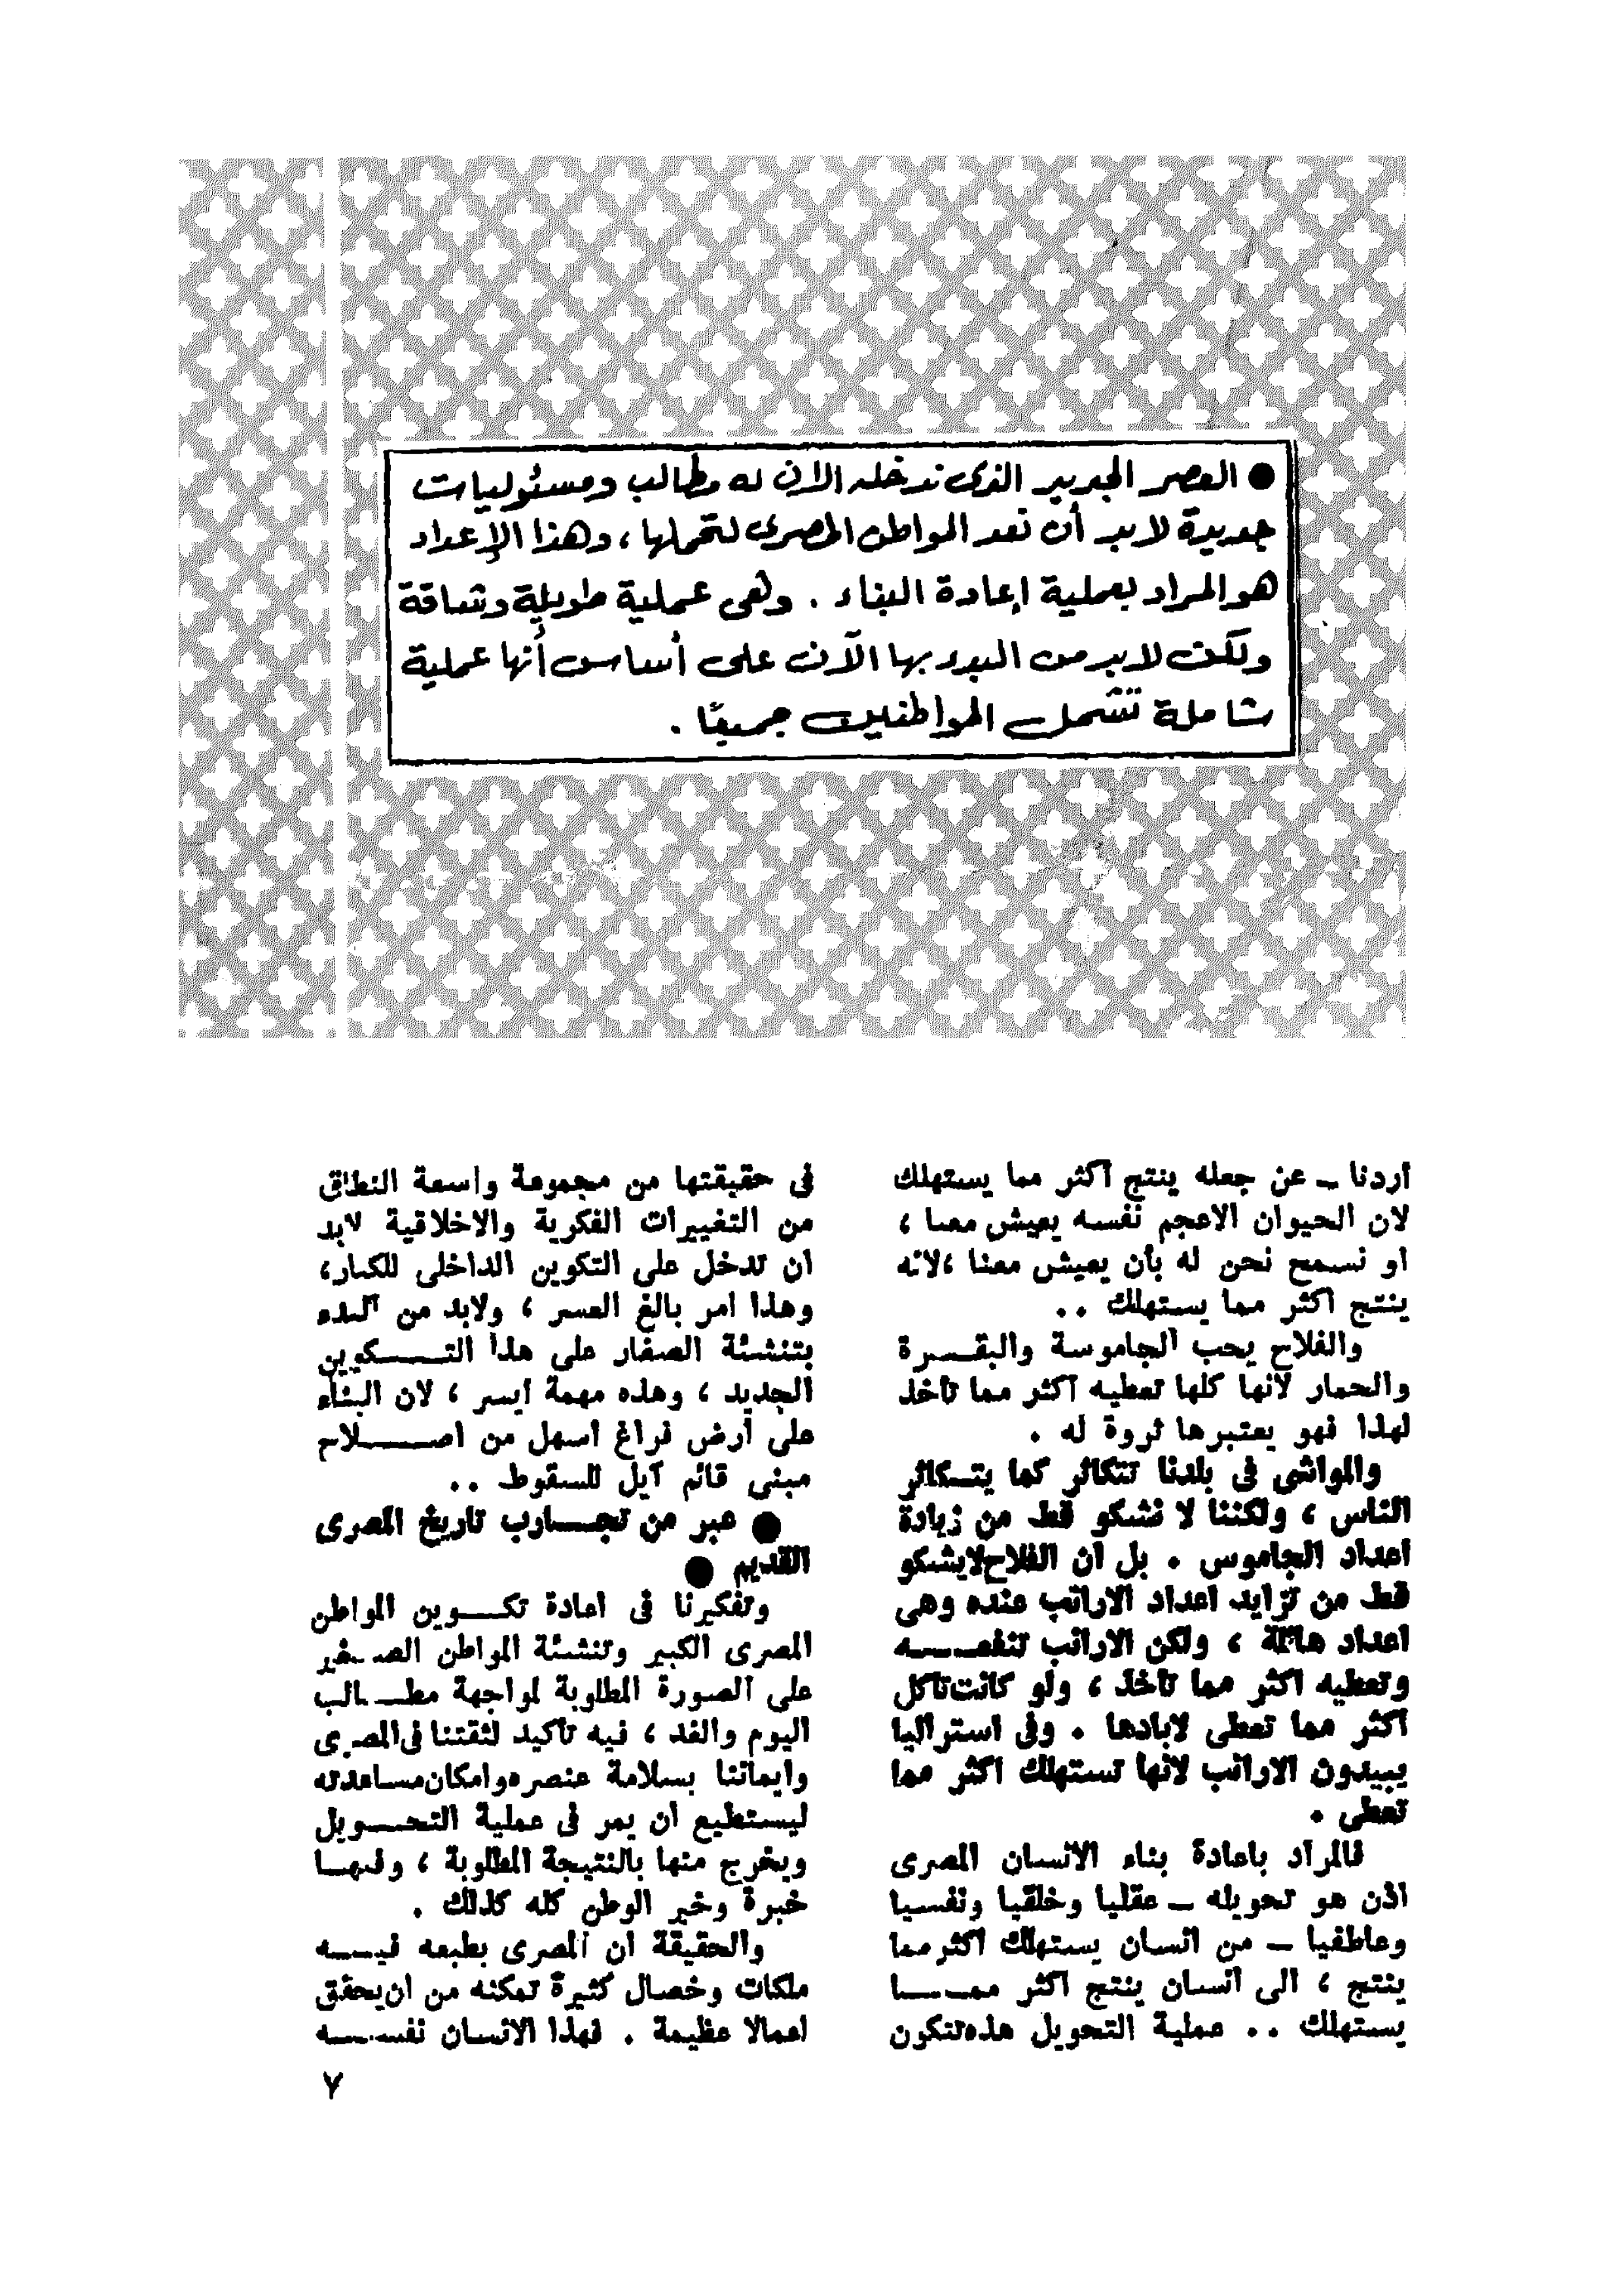 ● العصر الجديد الذى ندخله الآن له مطالب ومسئوليات
جديدة لابد أن نعد المواطن المصرى لتحملها ، وهذا الإعداد
هو المراد بعملية إعادة البناء . وهى عملية طويلة وشاقة
ولكن لابد من البدء بها الآن على أساس أنها عملية
شاملة تشمل المواطنين جميعًا .
أردنا ــ عن جعله ينتج أكثر مما يستهلك
لان الحيوان الاعجم نفسه يعيش معنا ،
او نسمح نحن له بأن يعيش معنا ، لانه
ينتج اكثر مما يستهلك ..
والفلاح يحب الجاموسة والبقـــرة
والحمار لانها كلها تعطيه أكثر مما تأخذ
لهذا فهو يعتبرها ثروة له .
والمواشى فى بلدنا تتكاثر كما يتــكاثر
الناس ، ولكننا لا نشكو قط من زيادة
اعداد الجاموس . بل ان الفلاح لايشكو
قط من تزايد اعداد الارانب عنده وهى
اعداد هائلة ، ولكن الارانب تنفعـــــه
وتعطيه اكثر مما تأخذ ، ولو كانت تأكل
أكثر مما تعطى لابادها . وفى استراليا
يبيدون الارانب لانها تستهلك اكثر مما
تعطى .
فالمراد باعادة بناء الانسان المصرى
اذن هو تحويله ــ عقليا وخلقيا ونفسيا
وعاطفيا ــ من انسان يستهلك اكثر مما
ينتج ، الى انسان ينتج أكثر ممـــــا
يستهلك .. عملية التحويل هذه تتكون
فى حقيقتها من مجموعة واسعة النطاق
من التغييرات الفكرية والاخلاقية لابد
ان تدخل على التكوين الداخلى للكبار،
وهذا امر بالغ العسر ، ولابد من البدء
بتنشئة الصغار على هذا التـــــكوين
الجديد ، وهذه مهمة أيسر ، لان البناء
على أرض فراغ أسهل من اصـــــلاح
مبنى قائم آيل للسقوط ..
● عبر من تجـــارب تاريخ المصرى
القديم ●
وتفكيرنا فى اعادة تكـــوين المواطن
المصرى الكبير وتنشئة المواطن الصـغير
على الصورة المطلوبة لمواجهة مطــالب
اليوم والغد ، فيه تأكيد لثقتنا فى المصرى
وايماننا بسلامة عنصره وامكان مساعدته
ليستطيع أن يمر فى عملية التحـــويل
ويخرج منها بالنتيجة المطلوبة ، وفيهــا
خيرة وخير الوطن كله كذلك .
والحقيقة ان المصرى بطبعه فيـــــه
ملكات وخصال كثيرة تمكنه من ان يحقق
اعمالا عظيمة . فهذا الانسان نفســـــه
٧